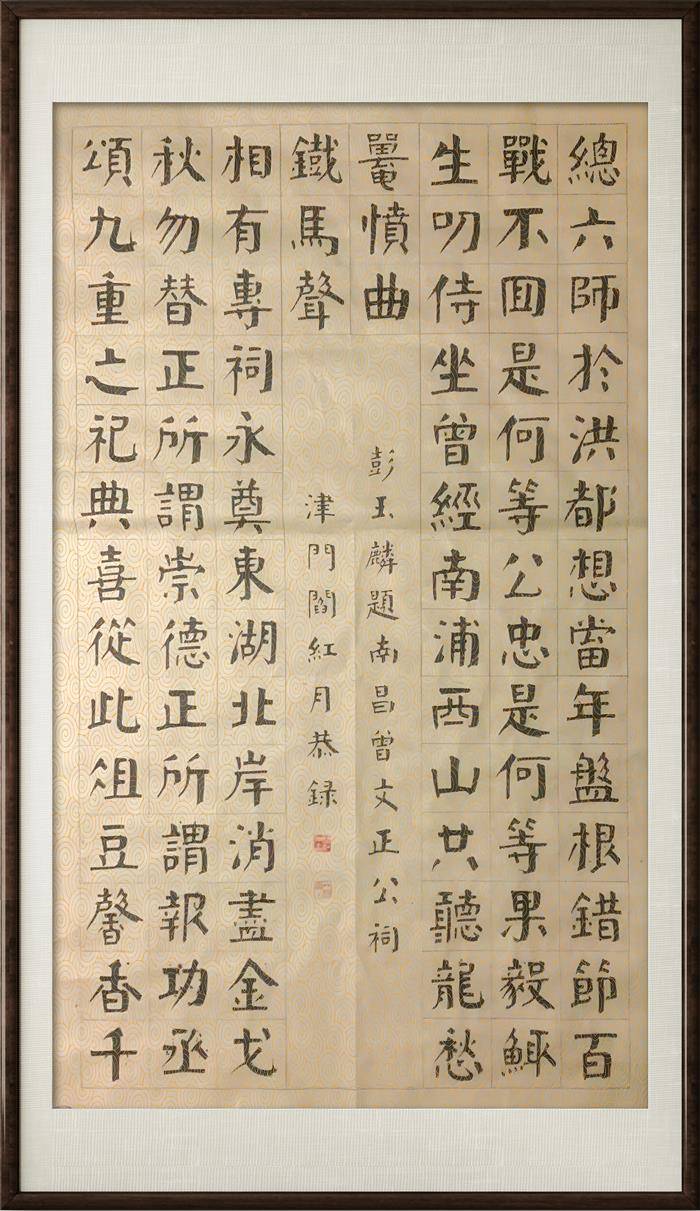 總六師於洪都想當年盤根錯節百
戰不囬是何等公忠是何等果毅鯫
生叨侍坐曾經南浦西山共聽龍愁
鼉憤曲
頌九重之祀典喜從此俎豆馨香千
秋勿替正所謂崇德正所謂報功丞
相有專祠永奠東湖北岸消盡金戈
鐵馬聲
彭玉麟題南昌曾文正公祠
津門閻紅月恭録